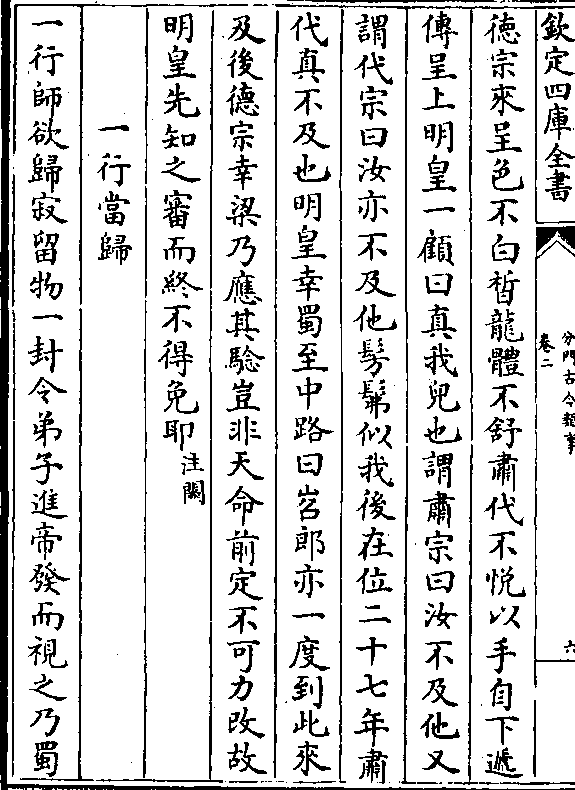 欽定四庫全書
分門古今類事
卷二
六
德宗來呈色不白皙龍體不舒肅代不悅以手自下遞
傳呈上明皇一顧曰真我兒也謂肅宗曰汝不及他又
謂代宗曰汝亦不及他髣髴似我後在位二十七年肅
代真不及也明皇幸蜀至中路曰岧郎亦一度到此來
及後德宗幸梁乃應其驗豈非天命前定不可力改故
明皇先知之審而終不得免耶注闕
一行當歸
一行師欲歸寂留物一封令弟子進帝發而視之乃蜀